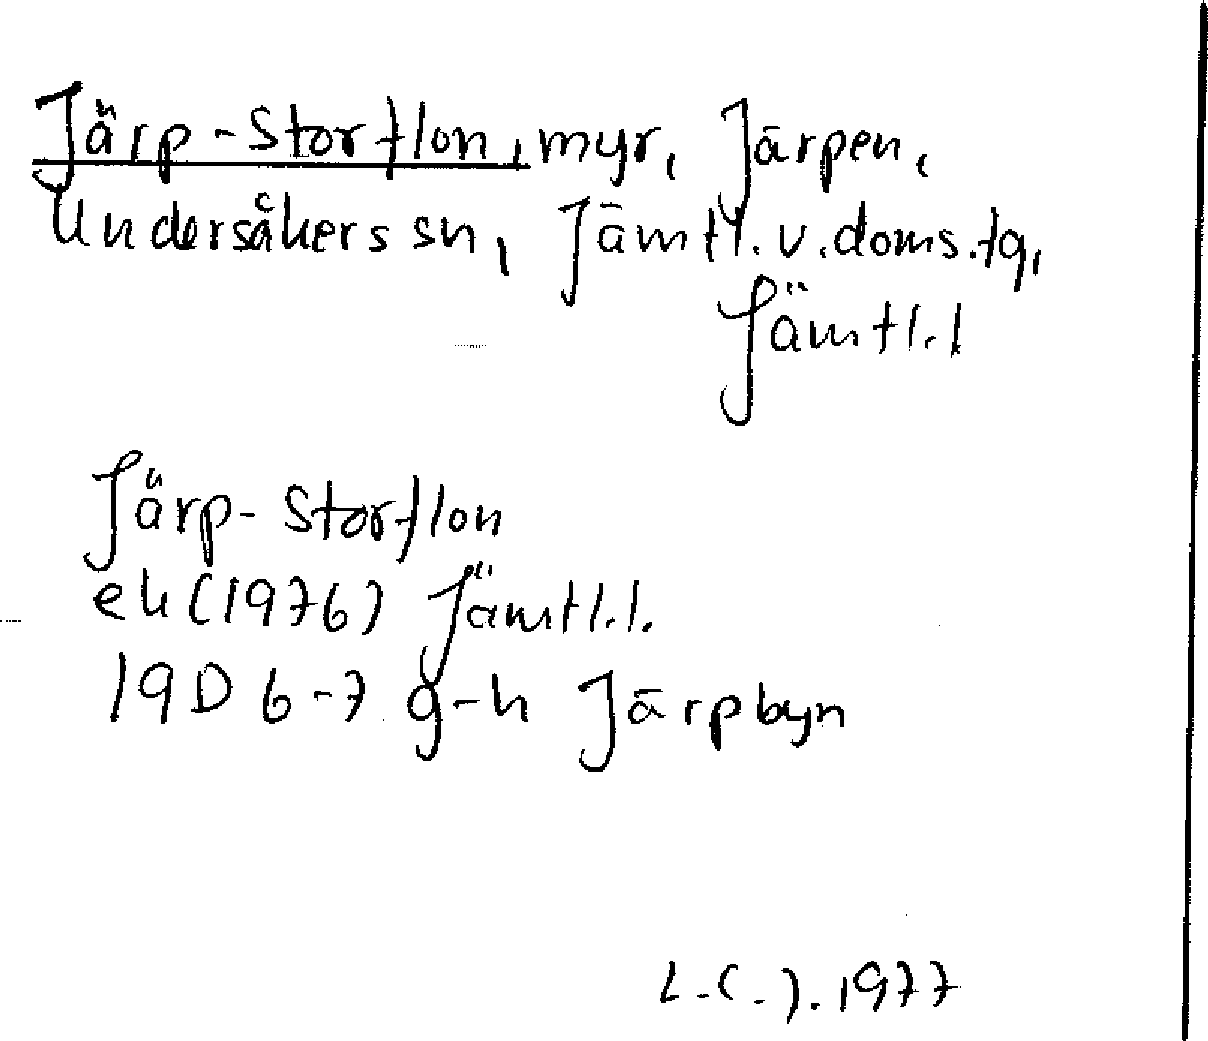 Järp-Storflon, myr, Järpen,
Undersåkers sn, Jämtl. v. doms. tg,
Jämtl. l
Järp-Storflon
ek (1976) Jämtl. l.
19D 6-7 g-h Järpbyn
1977